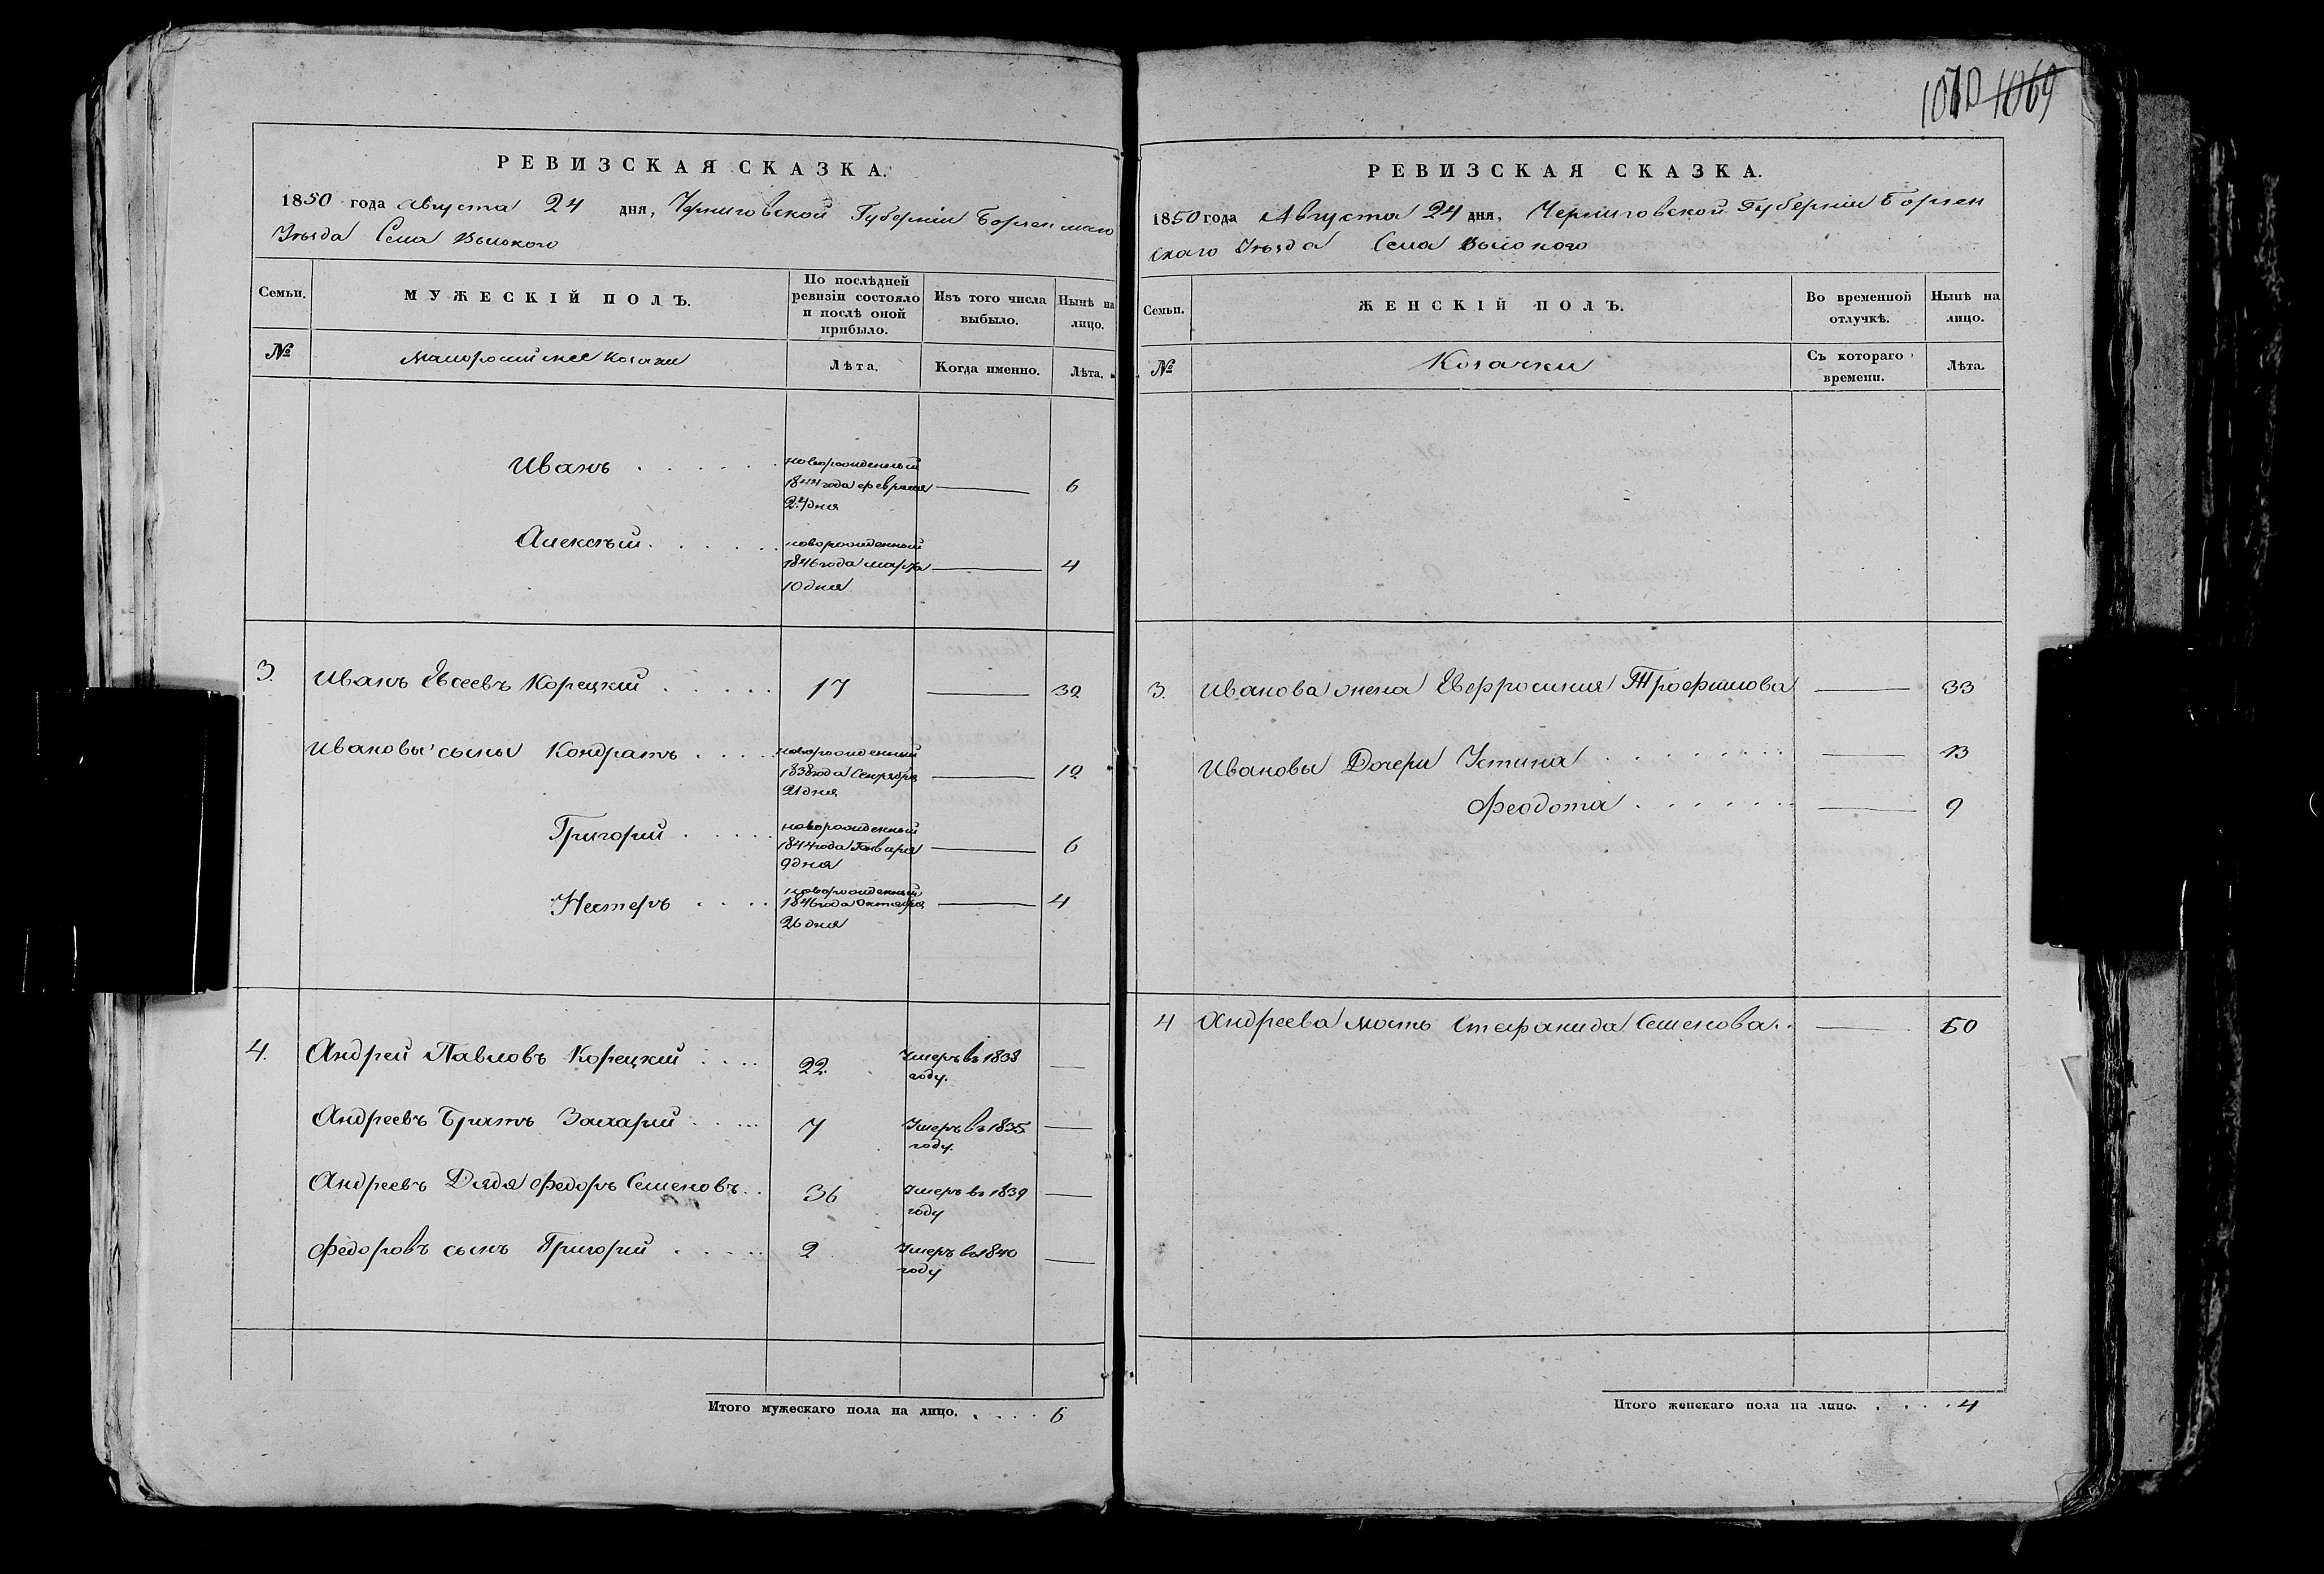 1070 1069
РЕВИЗСКАЯ СКАЗКА.
1850 года августа 24 дня, Черниговской Губерніи Борзенскаго
Уѣзда Села Высокого
Семьи.
МУЖЕСКІЙ ПОЛЪ.
По послѣдней ревизіи состояло и послѣ оной прибыло.
Изъ того числа выбыло.
Нынѣ на лицо.
№
Малоросийскее козаки
Лѣта.
Когда именно.
Лѣта.
Иванъ . . . . . . новорожденный
1844 года февраля 6
24 дня
Алексѣй . . . . . . новорожденный
1846 года марта 4
10 дня
3. Иванъ Евсеевъ Корецкий . . . . . 17 32
Ивановы сыны Кондратъ . . . . новорожденный
1838 года Сентября 12
21 дня
Григорий . . . . . новорожденный
1844 года Января 6
9 дня
Нестеръ . . . . новорожденный
1846 года Октября 4
26 дня
4. Андрей Павловъ Корецкий . . . . 22. Умеръ въ 1838
году.
Андреевъ Братъ Захарий . . . . . 7 Умеръ въ 1835
году.
Андреевъ Дядя Федоръ Семеновъ . . 36 Умеръ въ 1839
году
Федоровъ сынъ Григорий . . . . . 2 Умеръ въ 1840
году
Итого мужескаго пола на лицо. . . . . 6
РЕВИЗСКАЯ СКАЗКА.
1850 года Августа 24 дня, Черниговской Губерніи Борзен
скаго Уѣзда Села Высокого
Семьи.
ЖЕНСКІЙ ПОЛЪ.
Во временной отлучкѣ.
Нынѣ на лицо.
№
Козачки
Съ котораго времени.
Лѣта.
3. Иванова жена Евфросиния Трофимова 33
Ивановы Дочери Устина . . . . . . . 13
Феодота . . . . . . 9
4 Андреева мать Стефанида Семенова . . 50
Итого женскаго пола на лицо. . . . . 4